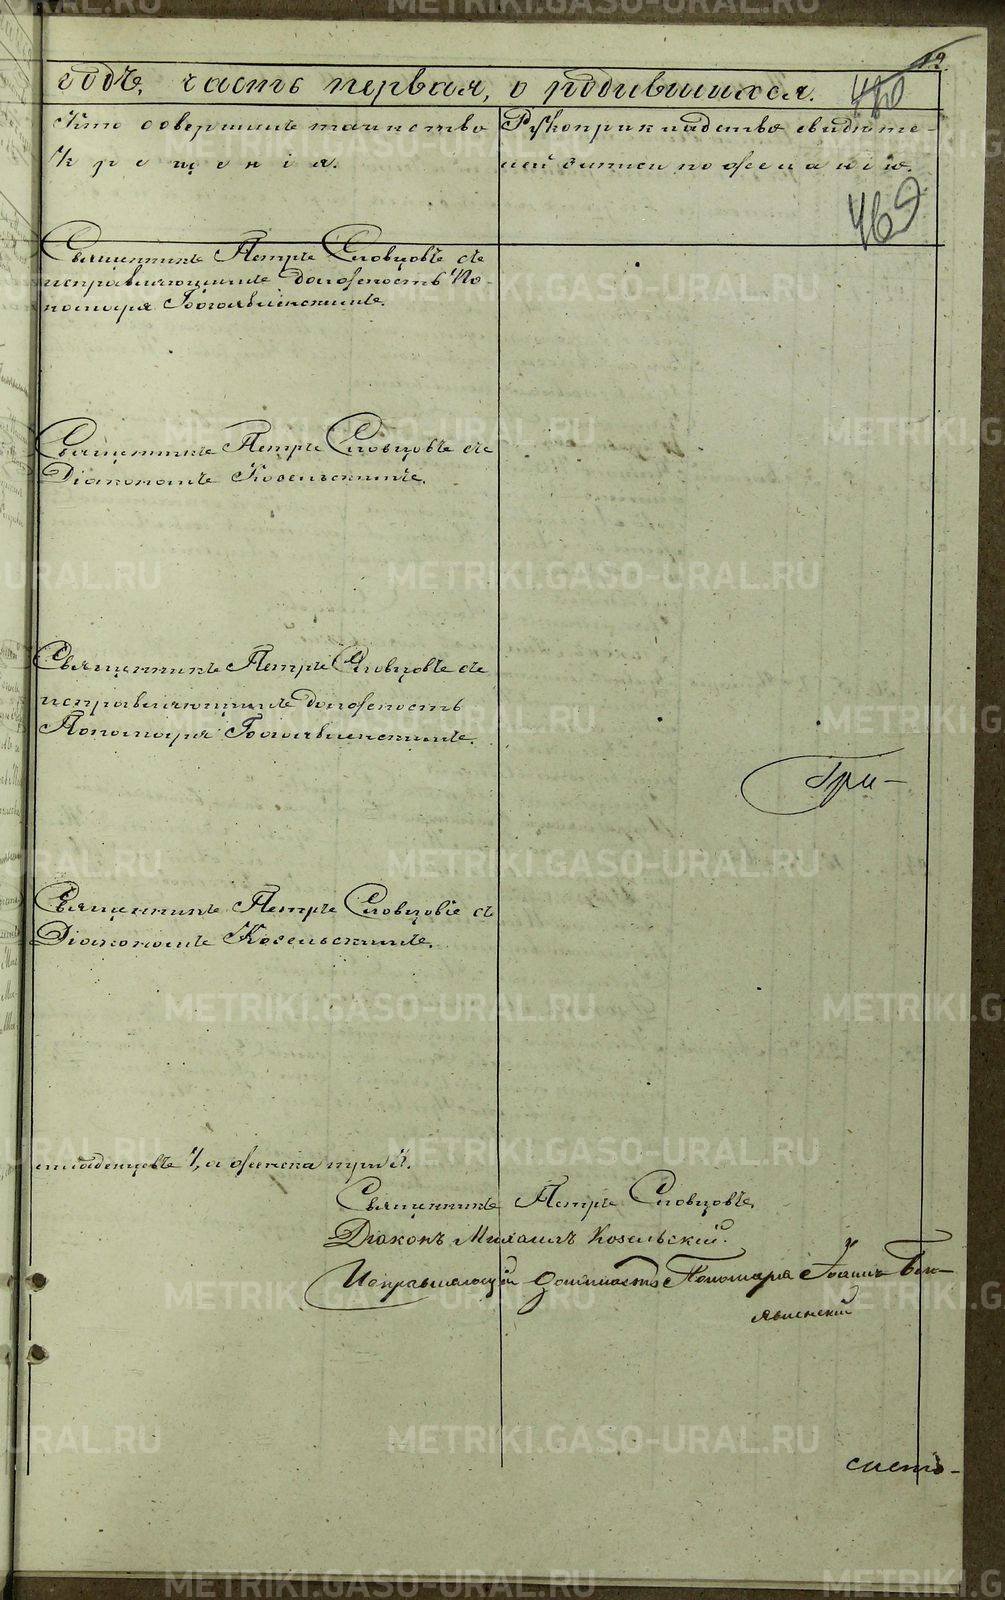 12
годѣ, часть первая, о родившихся.
480
Кто совершилъ таинство
крещенія.
Рукоприкладство свидѣте-
лей записи по желанію.
469
Священникъ Петръ Словцовъ съ
исправляющимъ должность По-
номаря Богоявленскимъ.
Священникъ Петръ Словцовъ съ
Діакономъ Козельскимъ.
Священникъ Петръ Словцовъ съ
исправляющимъ должность
Пономаря Богоявленскимъ.
Гри-
Священникъ Петръ Словцовъ съ
Діакономъ Козельскимъ.
младенцевъ 4, а женска
Священникъ Петръ Словцовъ.
Діаконъ Михаилъ Козельскій.
Исправляющій должность Пономаря Іоаннъ Бого-
явленскій
METRIKI.GASO-URAL.RU